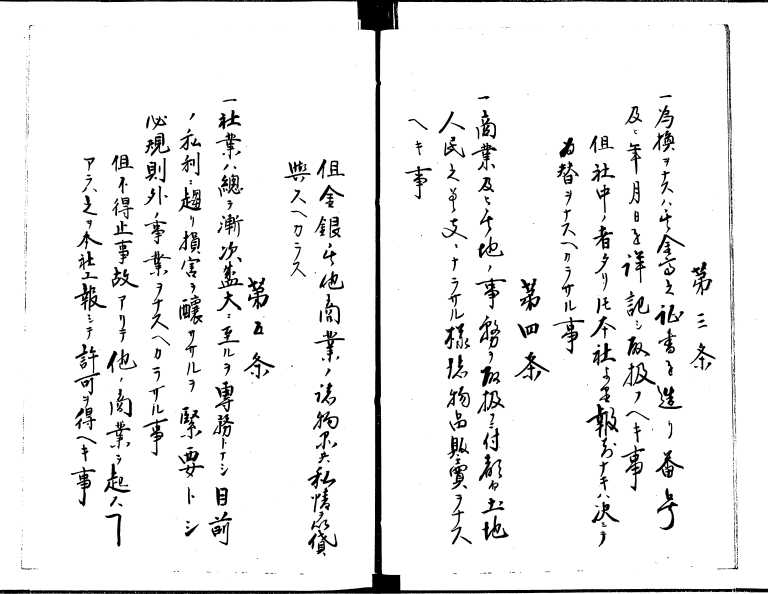 第三条
一為換ヲナスハ其金高之証書ヲ造リ番号
及ヒ年月日ヲ詳記シ取扱フヘキ事
但社中ノ者タリ𪜈本社ヨリ報知ナキハ決シテ
為替ヲナスヘカラサル事
第四条
一商業及ヒ其地ノ事務ヲ取扱フニ付都而土地
人民之差支ニナラサル様諸物品販賣ヲナス
ヘキ事
但金銀其他商業ノ諸物品共私情ヲ以貸
與スヘカラス
第五条
一社業ハ總テ漸次盛大ニ至ルヲ専務トナシ目前
ノ私利ニ趨リ損害ヲ醸サヽルヲ緊要トシ
必規則外ノ事業ヲナスヘカラサル事
但不得止事故アリテ他ノ商業ヲ起スヿ
アラハ之ヲ本社エ報シテ許可ヲ得ヘキ事